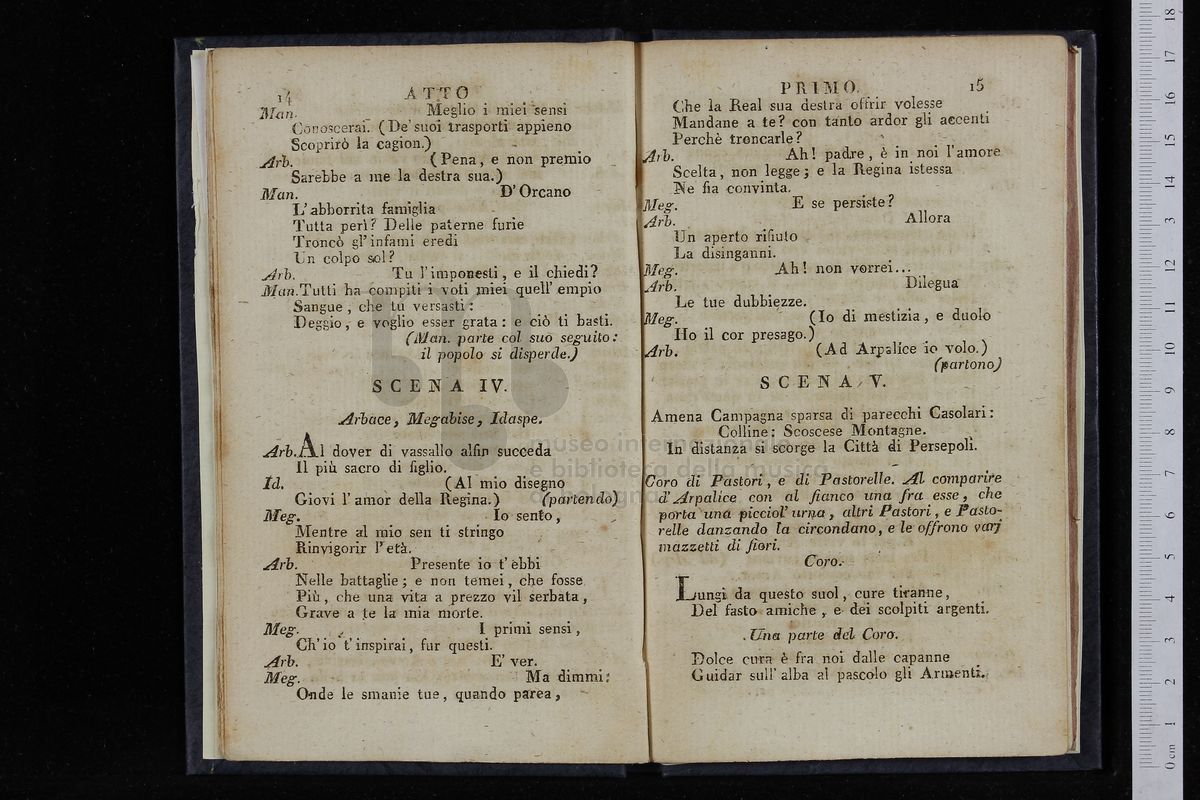 14
ATTO
Man. Meglio i miei sensi
Conoscerai. (De' suoi trasporti appieno
Scoprirò la cagion.)
Arb. (Pena, e non premio
Sarebbe a me la destra sua.)
Man. D' Orcano
L' abborrita famiglia
Tutta perì? Delle paterne furie
Troncò gl' infami eredi
Un colpo sol?
Arb. Tu l' imponesti, e il chiedi?
Man. Tutti ha compiti i voti miei quell' empio
Sangue, che tu versasti:
Deggio, e voglio esser grata: e ciò ti basti.
(Man. parte col suo seguito:
il popolo si disperde.)
SCENA IV.
Arbace, Megabise, Idaspe.
Arb. Al dover di vassallo alfin succeda
Il più sacro di figlio.
Id. (Al mio disegno
Giovi l' amor della Regina.) (partendo)
Meg. Io sento,
Mentre al mio sen ti stringo
Rinvigorir l' età.
Arb. Presente io t' ebbi
Nelle battaglie; e non temei, che fosse
Più, che una vita a prezzo vil serbata,
Grave a te la mia morte.
Meg. I primi sensi,
Ch' io t' inspirai, fur questi.
Arb. E' ver.
Meg. Ma dimmi:
Onde le smanie tue, quando parea,
PRIMO. 15
Che la Real sua destra offrir volesse
Mandane a te? con tanto ardor gli accenti
Perchè troncarle?
Arb. Ah! padre, è in noi l' amore
Scelta, non legge; e la Regina istessa
Ne fia convinta.
Meg. E se persiste?
Arb. Allora
Un aperto rifiuto
La disinganni.
Meg. Ah! non vorrei...
Arb. Dilegua
Le tue dubbiezze.
Meg. (Io di mestizia, e duolo
Ho il cor presago.)
Arb. (Ad Arpalice io volo.)
(partono)
SCENA V.
Amena Campagna sparsa di parecchi Casolari:
Colline: Scoscese Montagne.
In distanza si scorge la Città di Persepoli.
Coro di Pastori, e di Pastorelle. Al comparire
d' Arpalice con al fianco una fra esse, che
porta una picciol' urna, altri Pastori, e Pasto-
relle danzando la circondano, e le offrono varj
mazzetti di fiori.
Coro.
Lungi da questo suol, cure tiranne,
Del fasto amiche, e dei scolpiti argenti.
Una parte del Coro.
Dolce cura è fra noi dalle capanne
Guidar sull' alba al pascolo gli Armenti.
museo internazionale
e biblioteca della musica
di bologna
0 cm 1 2 3 4 5 6 7 8 9 10 11 12 13 14 15 16 17 18